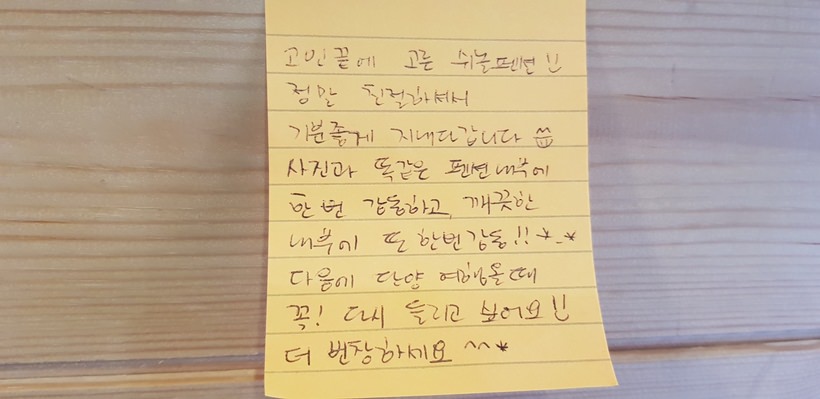 고민끝에 고른 쉬놀펜션!!
정말 친절하셔서
기분좋게 지내다갑니다
사진과 똑같은 펜션내부에
한 번 감동하고, 깨끗한
내부에 또 한번 감동!! *-*
다음에 단양 여행올때
꼭! 다시 들리고 싶어요!!
더 번창하세요 ^^*